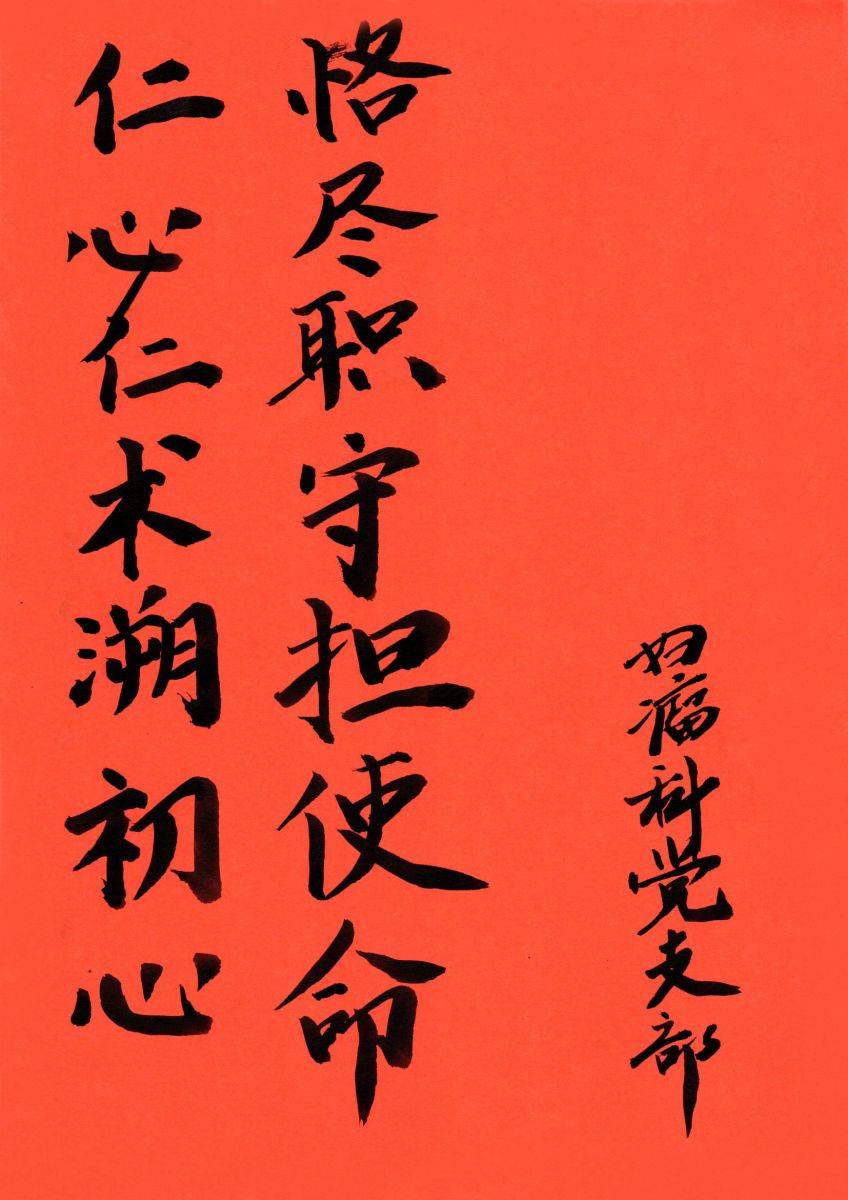 仁心仁术溯初心
恪尽职守担使命
妇瘤科党支部